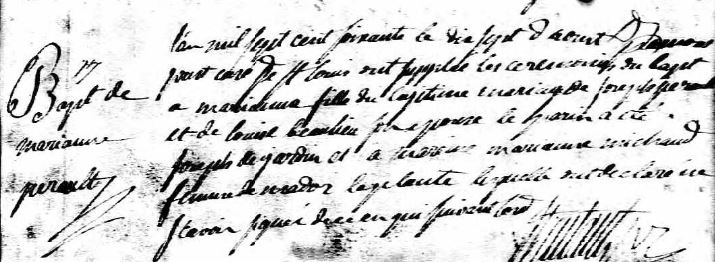 Bapt de
marianne
perault
l'an mil sept cent soixante le dix sept d aoust
pour curé de St louis ont supplée les ceremonies du bapt
a marianna fille du legitime mariage de joseph perault
et de louise beaulieu son epouse le parin a été
joseph de jardin et a mareine marianne michaud
femme de laplante laquelle ont declaré ne
scavoir signé de ce enquis suivant lord